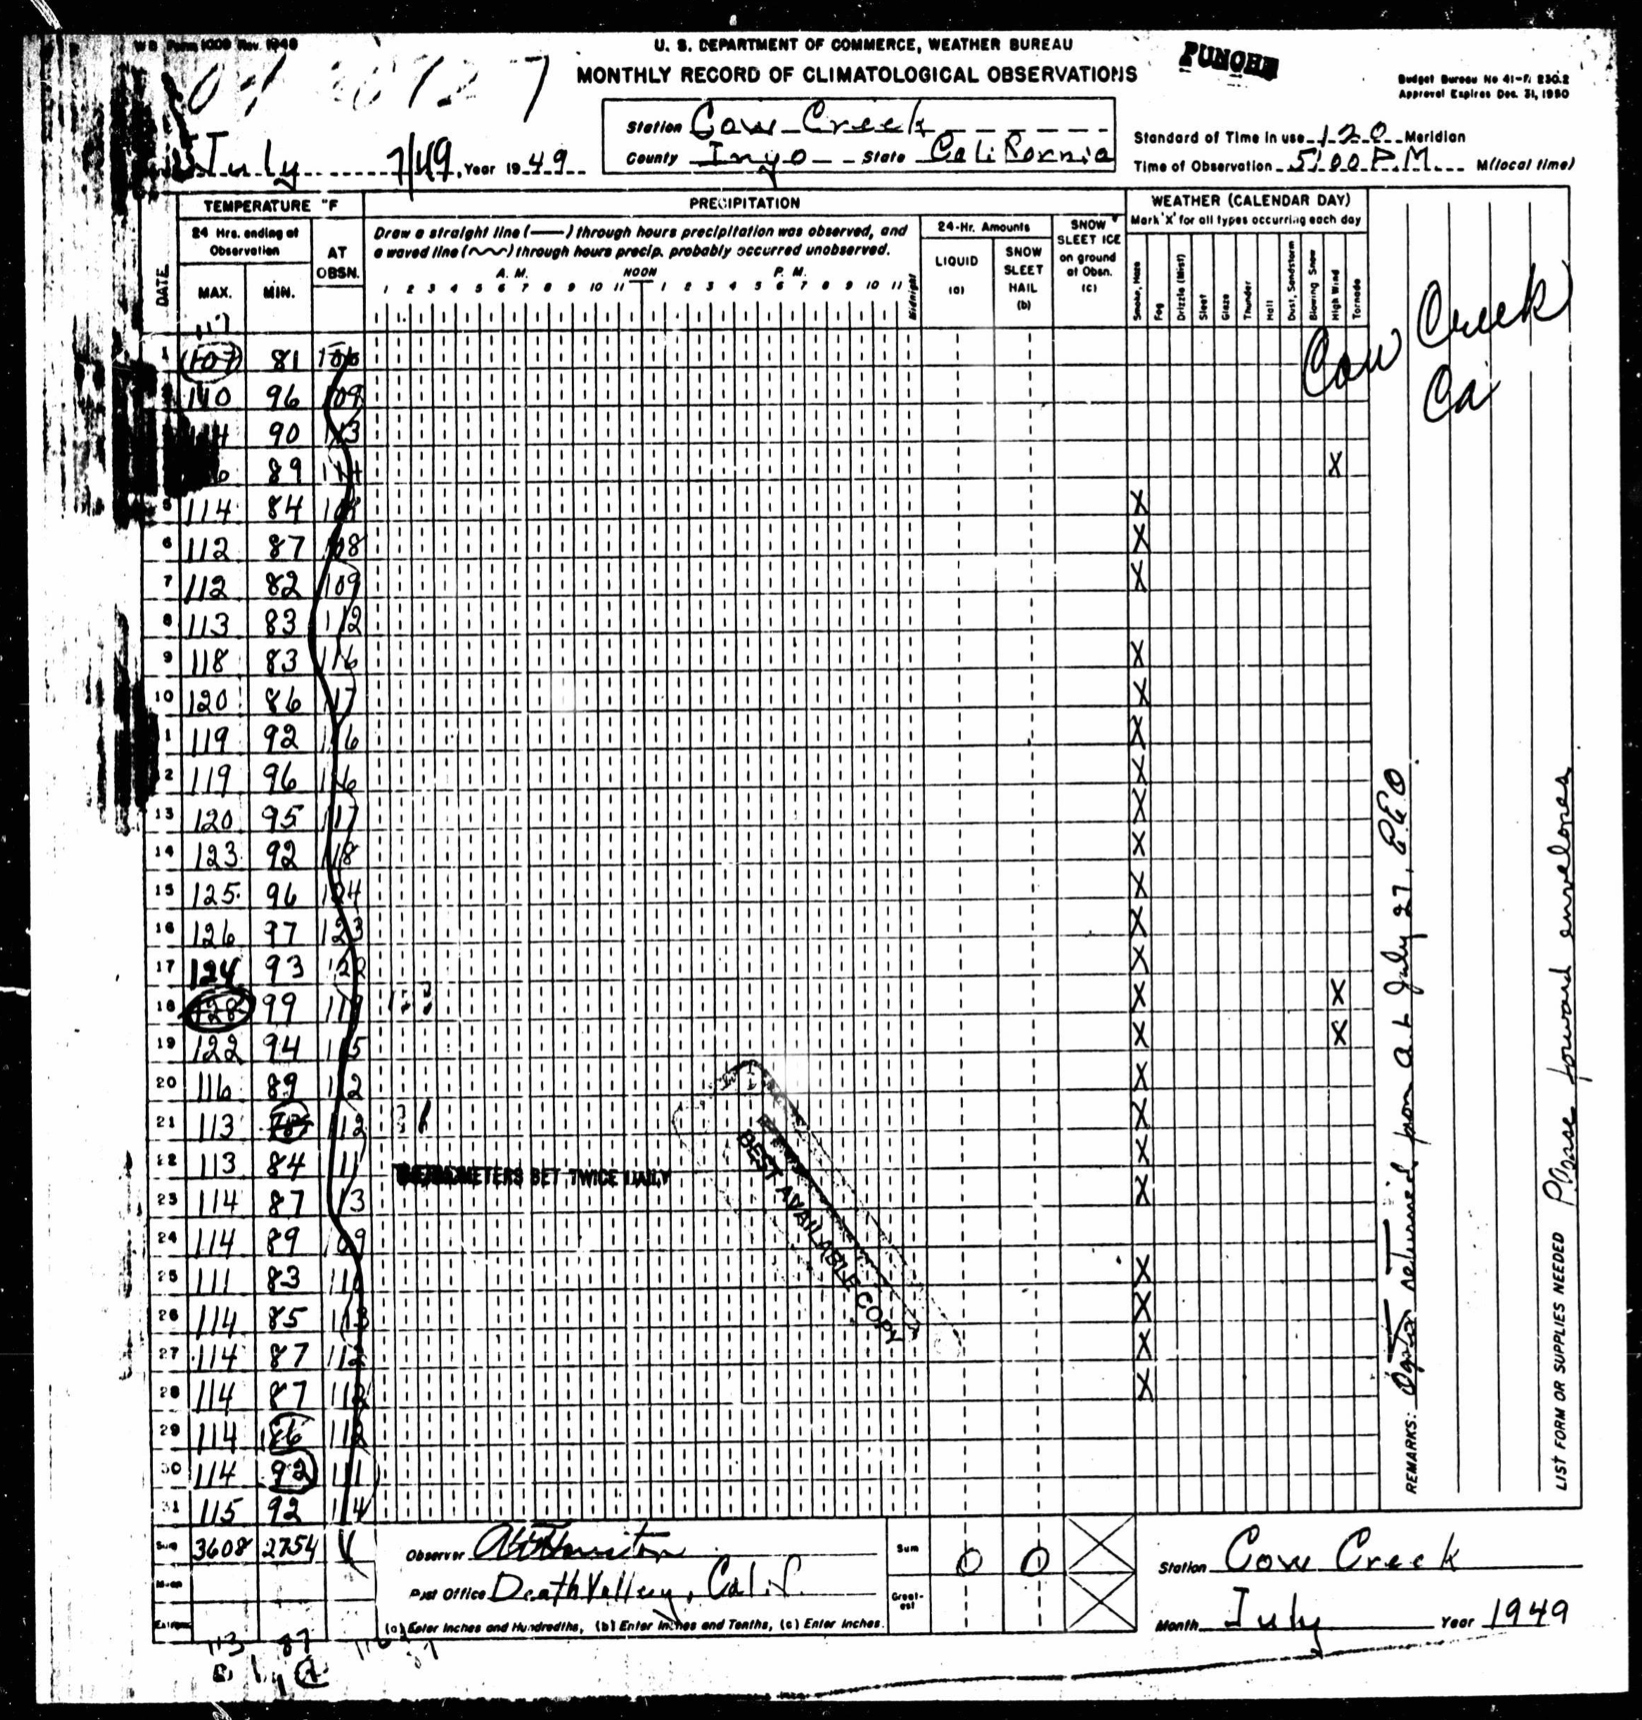 W B Form 1009 Rev. 1948
U. S. DEPARTMENT OF COMMERCE, WEATHER BUREAU
MONTHLY RECORD OF CLIMATOLOGICAL OBSERVATIONS
Budget Bureau No 41-R 230.2
Approval Expires Dec. 31, 1950
Station Cow Creek
County Inyo State California
Standard of Time in use 120 Meridian
Time of Observation 5:00 P.M. M (local time)
July 7/49 Year 19 49
TEMPERATURE °F
PRECIPITATION
WEATHER (CALENDAR DAY)
Mark 'X' for all types occurring each day
24 Hrs. ending at Observation
AT OBSN.
Draw a straight line (——) through hours precipitation was observed, and
a waved line (~~) through hours precip. probably occurred unobserved.
24-Hr. Amounts
LIQUID (a)
SNOW SLEET HAIL (b)
SNOW SLEET ICE on ground at Obsn. (c)
DATE MAX. MIN.
A. M. NOON P. M.
1 2 3 4 5 6 7 8 9 10 11 1 2 3 4 5 6 7 8 9 10 11 Midnight
Smoke, Haze Fog Drizzle (Mist) Sleet Glaze Thunder Hail Dust, Sandstorm Blowing Snow High Wind Tornado
Cow Creek
Ca
117
1 107 81 106
110 96 109
90 113
89 114 X
5 114 84 108 X
6 112 87 108 X
7 112 82 109 X
8 113 83 112
9 118 83 116 X
10 120 86 117 X
1 119 92 116 X
2 119 96 116 X
13 120 95 117 X
14 123 92 118 X
15 125 96 124 X
16 126 97 123 X
17 124 93 122 X
18 128 99 119 X X
19 122 94 115 X X
20 116 89 112 X
21 113 112 X
22 113 84 111 X
23 114 87 113 X
24 114 89 109
25 111 83 111 X
26 114 85 113 X
27 114 87 112 X
28 114 87 112 X
29 114 86 112
30 114 92 111
31 115 92 114
THERMOMETERS SET TWICE DAILY
BEST AVAILABLE COPY
Sum 3608 2754
Mean
Extreme
Observer
Post Office Death Valley, Calif.
(a) Enter Inches and Hundredths, (b) Enter Inches and Tenths, (c) Enter Inches.
Sum 0 0
Greatest
Station Cow Creek
Month July Year 1949
113 87
REMARKS: returned from July 27,
LIST FORM OR SUPPLIES NEEDED Please forward envelopes